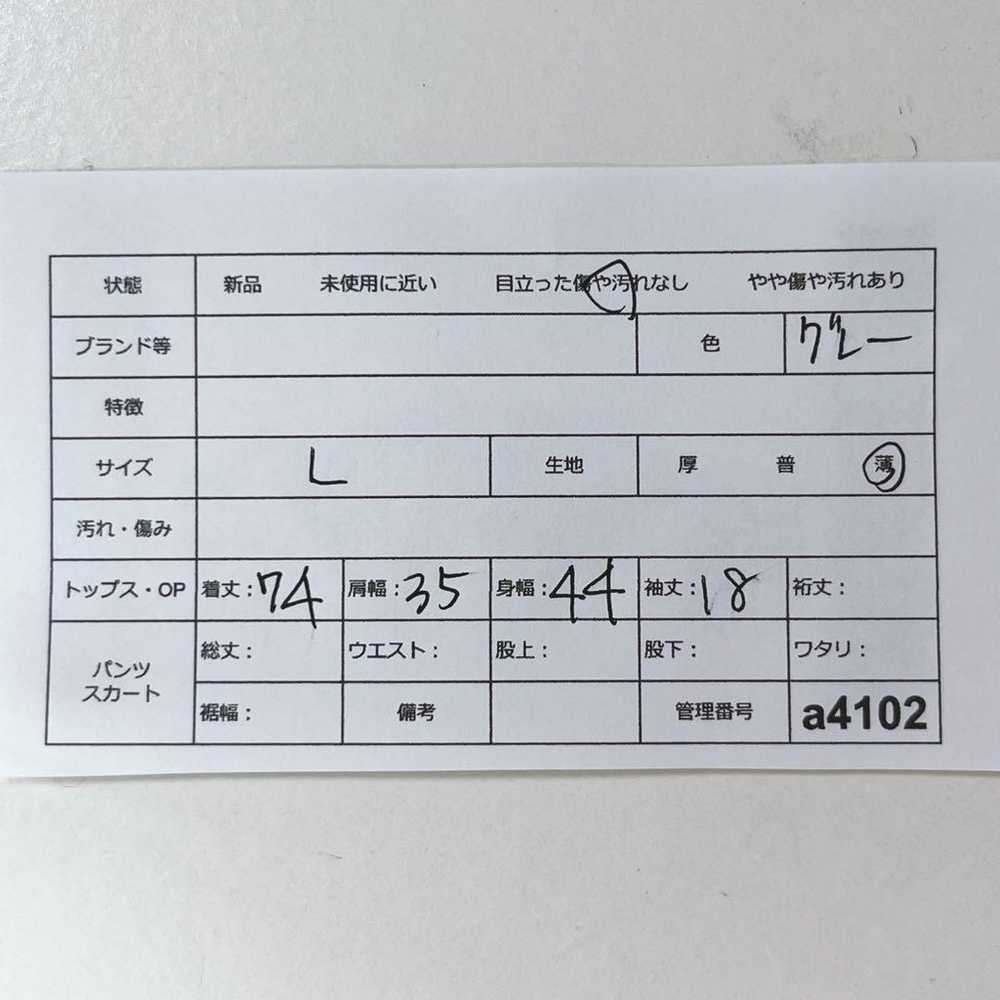 状態 新品 未使用に近い 目立った傷や汚れなし やや傷や汚れあり
ブランド等 色 グレー
特徴
サイズ L 生地 厚 普 薄
汚れ・傷み
トップス・OP 着丈:74 肩幅:35 身幅:44 袖丈:18 裄丈:
パンツ スカート 総丈: ウエスト: 股上: 股下: ワタリ:
裾幅: 備考 管理番号 a4102